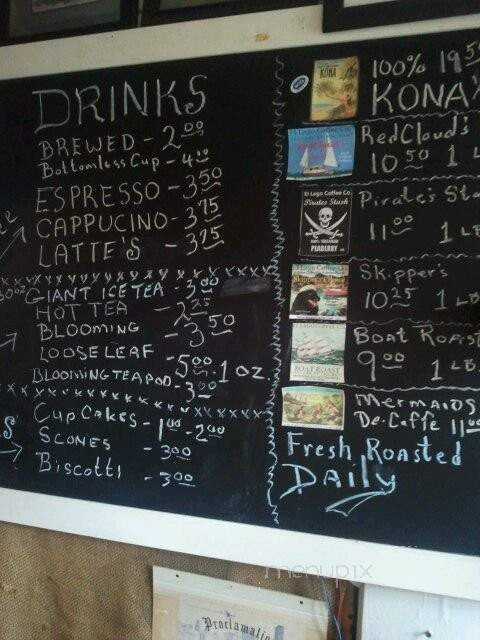 DRINKS
BREWED - 2.00
Bottomless Cup - 4.00
ESPRESSO - 3.50
CAPPUCINO - 3.75
LATTE'S - 3.75
GIANT ICE TEA - 3.00
HOT TEA - 2.25
BLOOMING - 3.50
LOOSE LEAF - 5.00 . 1 oz.
BLOOMING TEA POD - 3.00
CUP CAKES - 1.00 - 2.00
SCONES - 3.00
BISCOTTI - 3.00
100% 19.50
KONA
KONA
Red Cloud's
10.50 1 L
El Lago Coffee Co.
Pirates Stash
PEABERRY
Pirate's Sta
11.00 1 LB
Skippers
10.25 1 LB
Boat Roast
9.00 1 LB
BOAT ROAST
MERMAIDS
De-Caffe 11.00
Fresh Roasted
DAILY
menupix
Proclamatio